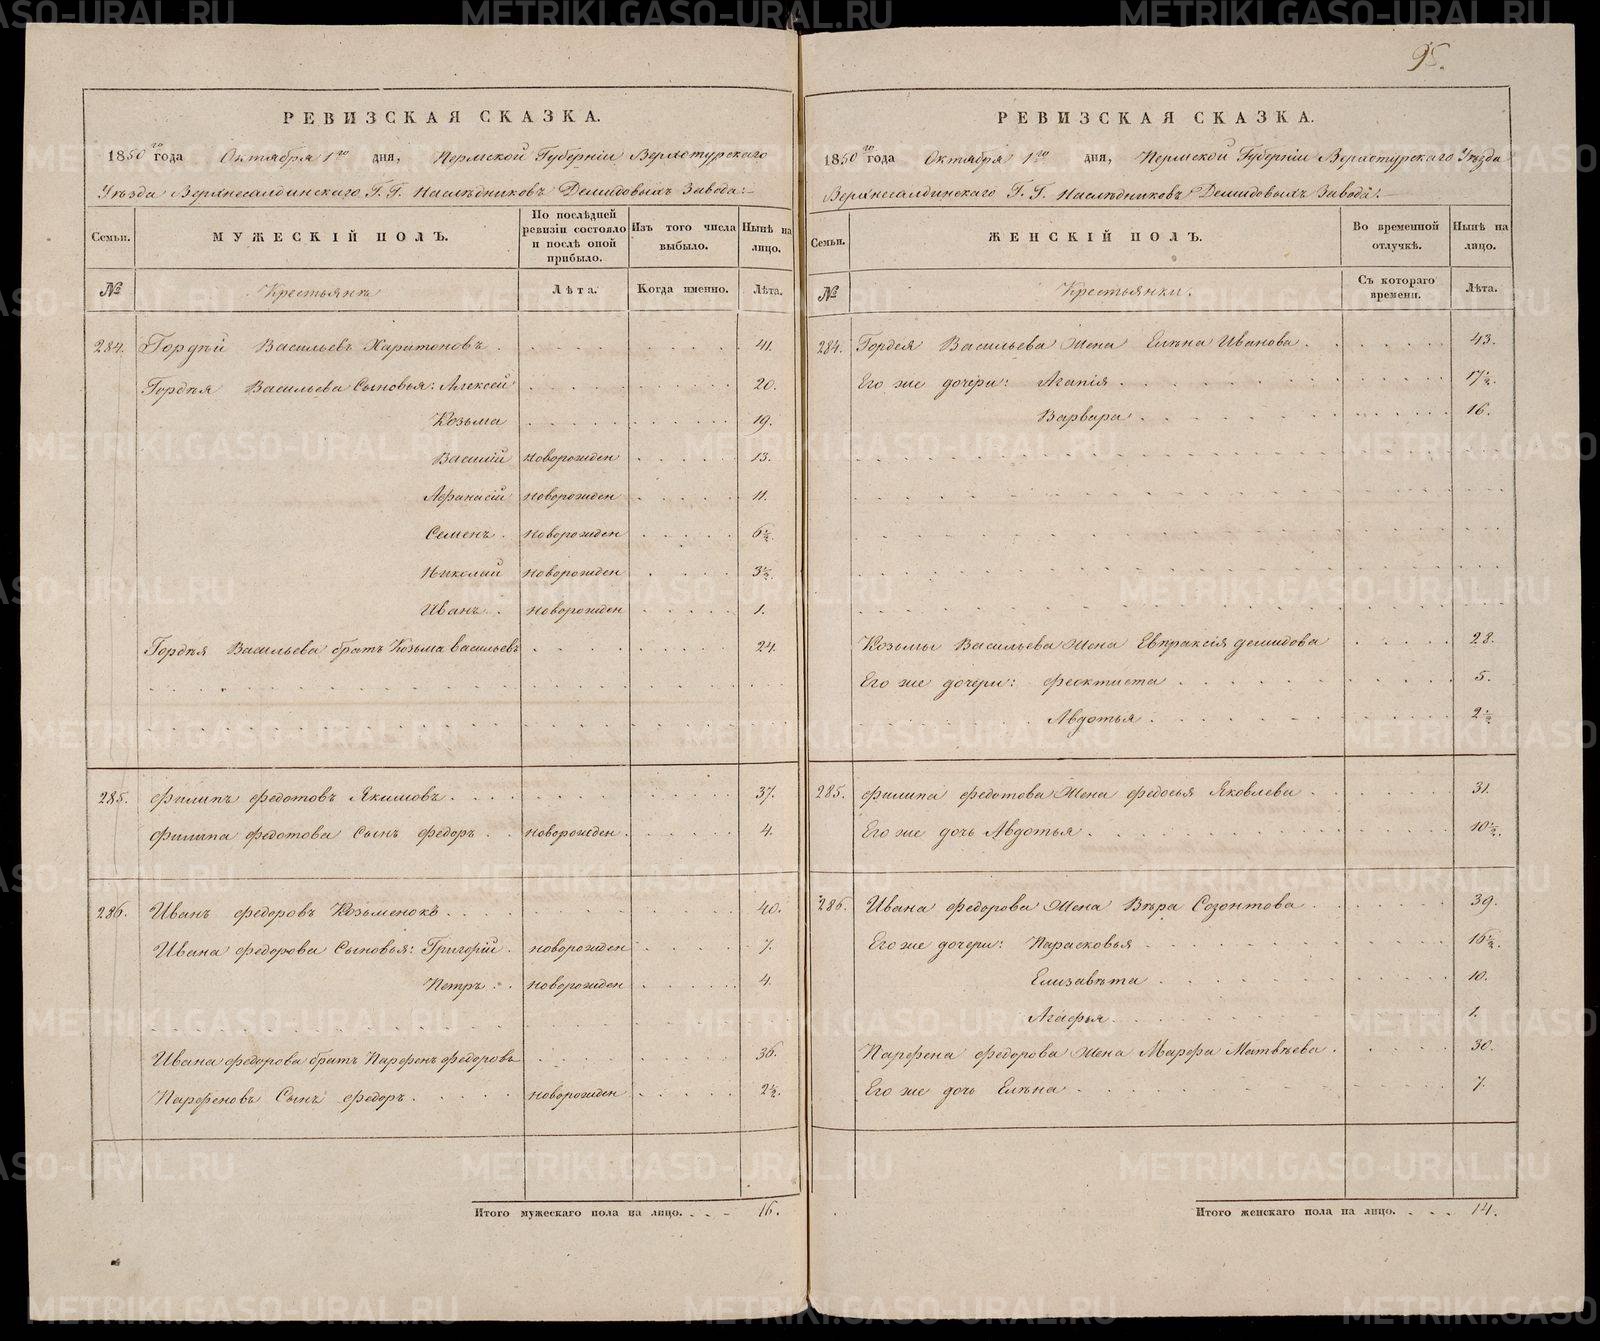 95.
РЕВИЗСКАЯ СКАЗКА.
1850го года Октября 1го дня, Пермской Губерніи Верхотурскаго
Уѣзда Верхнесалдинскаго Г. Г. Наслѣдниковъ Демидовыхъ Завода:
Семьи. МУЖЕСКІЙ ПОЛЪ. По послѣдней ревизіи состояло и послѣ оной прибыло. Изъ того числа выбыло. Нынѣ на лицо.
№ Крестьянъ Лѣта. Когда именно. Лѣта.
284. Гордѣй Васильевъ Харитоновъ 41.
Гордѣя Васильева Сыновья: Алексѣй 20.
Козьма 19.
Василій новорожден 13.
Афанасій новорожден 11.
Семенъ новорожден 6½.
Николай новорожден 3½.
Иванъ новорожден 1.
Гордѣя Васильева братъ Козьма Васильевъ 24.
285. Филипъ Федотовъ Якимовъ 37.
Филипа Федотова Сынъ Федоръ новорожден 4.
286. Иванъ Федоровъ Козьменокъ 40.
Ивана Федорова Сыновья: Григорій новорожден 7.
Петръ новорожден 4.
Ивана Федорова братъ Парфенъ Федоровъ 36.
Парфеновъ Сынъ Федоръ новорожден 2½.
Итого мужескаго пола на лицо. 16.
РЕВИЗСКАЯ СКАЗКА.
1850го года Октября 1го дня, Пермской Губерніи Верхотурскаго Уѣзда
Верхнесалдинскаго Г. Г. Наслѣдниковъ Демидовыхъ Завода:
Семьи. ЖЕНСКІЙ ПОЛЪ. Во временной отлучкѣ. Нынѣ на лицо.
№ Крестьянки. Съ котораго времени. Лѣта.
284. Гордея Васильева Жена Елѣна Иванова 43.
Его же дочери: Агапія 17½.
Варвара 16.
Козьмы Васильева Жена Евпраксія Демидова 28.
Его же дочери: Феоктиста 5.
Авдотья 2½
285. Филипа Федотова Жена Федосья Яковлева 31.
Его же дочь Авдотья 10½.
286. Ивана Федорова Жена Вѣра Созонтова 39.
Его же дочери: Парасковья 16½.
Елизавѣта 10.
Агафья 1.
Парфена Федорова Жена Марфа Матвѣева 30.
Его же дочь Елѣна 7.
Итого женскаго пола на лицо. 14.
METRIKI.GASO-URAL.RU